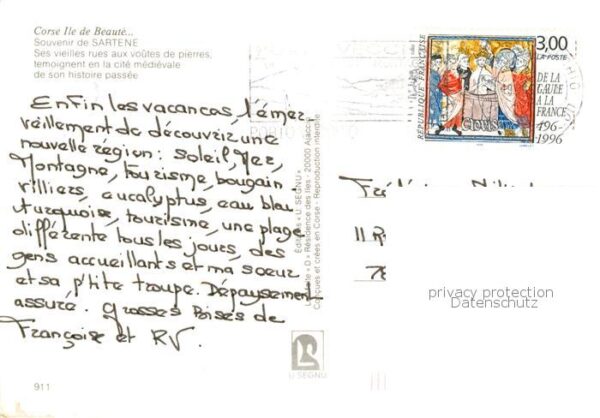 Corse Ile de Beauté...
Souvenir de SARTENE
Ses vieilles rues aux voûtes de pierres,
temoignent en la cité médiévale
de son histoire passée
Enfin les vacances, l'émer
veillement de découvrir une
nouvelle région : soleil, Mer,
Montagne, tourisme bougain-
villiers, eucalyptus, eau bleu
turquoise, tourisme, une plage
différente tous les jours, des
gens accueillants et ma soeur
et sa p'tite troupe. Dépaysement
assuré. Grosses Bises de
Françoise et RV.
911
Editions « U SEGNU »
Résidence des Iles - 20000 Ajaccio
Conçues et créées en Corse - Reproduction interdite
U SEGNU
RÉPUBLIQUE FRANÇAISE
3,00
LA POSTE
DE LA
GAULE
A LA
FRANCE
496-
1996
CLOVIS
PORTO
11 R
privacy protection
Datenschutz